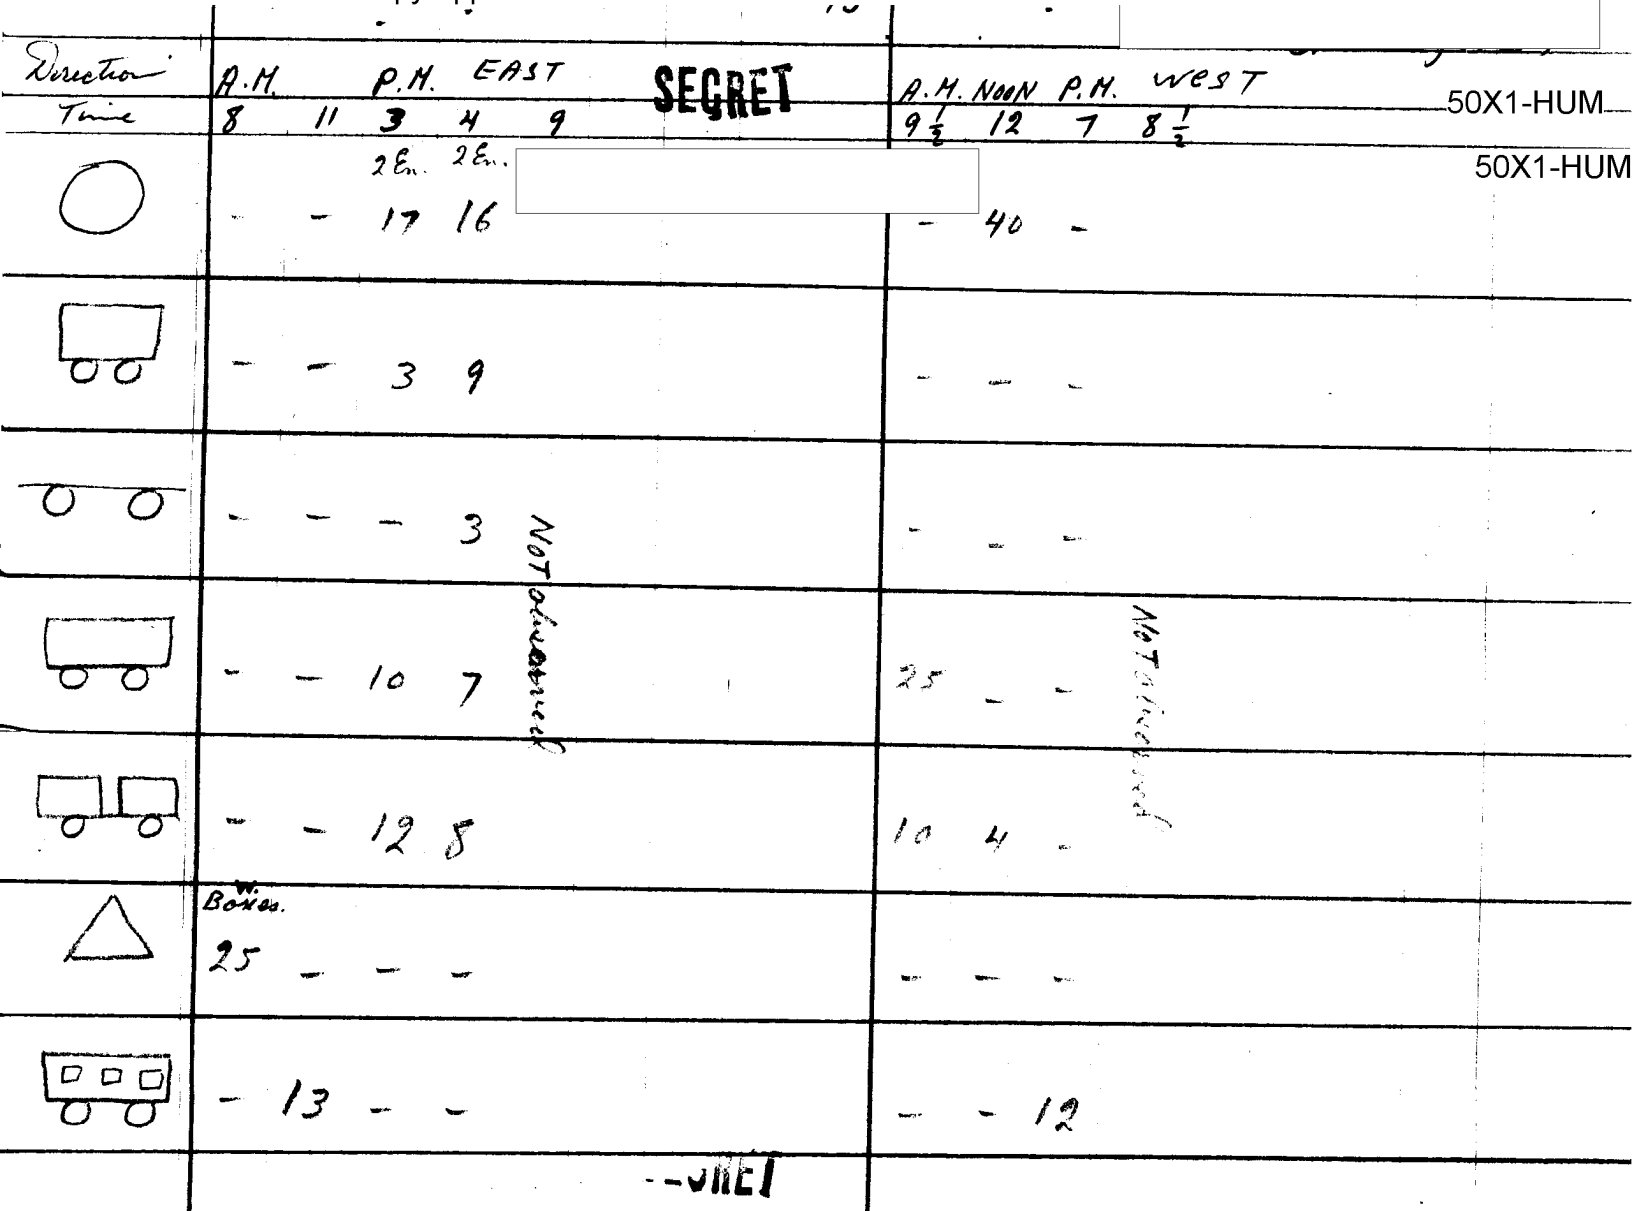 Direction A.M. P.M. EAST SECRET A.M. NOON P.M. WEST
Time 8 11 3 4 9 9 1/2 12 7 8 1/2 50X1-HUM
2 En. 2 En. 50X1-HUM
- - 17 16 - 40 -
- - 3 9 - - -
- - - 3 - - -
Not observed
- - 10 7 25 - -
Not observed
- - 12 8 10 4 -
W.
Boxes.
25 - - - - - -
- 13 - - - - 12